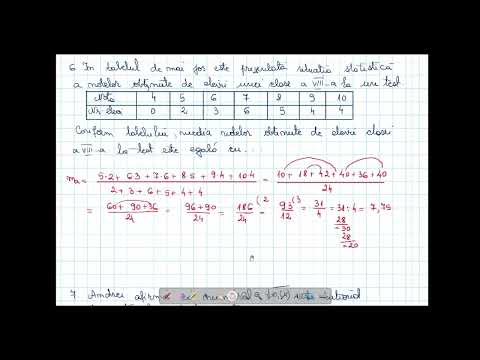 6. În tabelul de mai jos este prezentată situația statistică
a notelor obținute de elevii unei clase a VIII-a la un test
Nota 4 5 6 7 8 9 10
Nr. elevi 0 2 3 6 5 4 4
Conform tabelului, media notelor obținute de elevii clasei
a VIII-a la test este egală cu...
ma = 5·2 + 6·3 + 7·6 + 8·5 + 9·4 + 10·4 / 2+3+6+5+4+4 = 10 + 18 + 42 + 40 + 36 + 40 / 24
= 60 + 90 + 36 / 24 = 96 + 90 / 24 = 186 / 24 (2 = 93 / 12 (3 = 31 / 4 = 31 : 4 = 7,75
28
=30
28
=20
7. Andrei afirmă